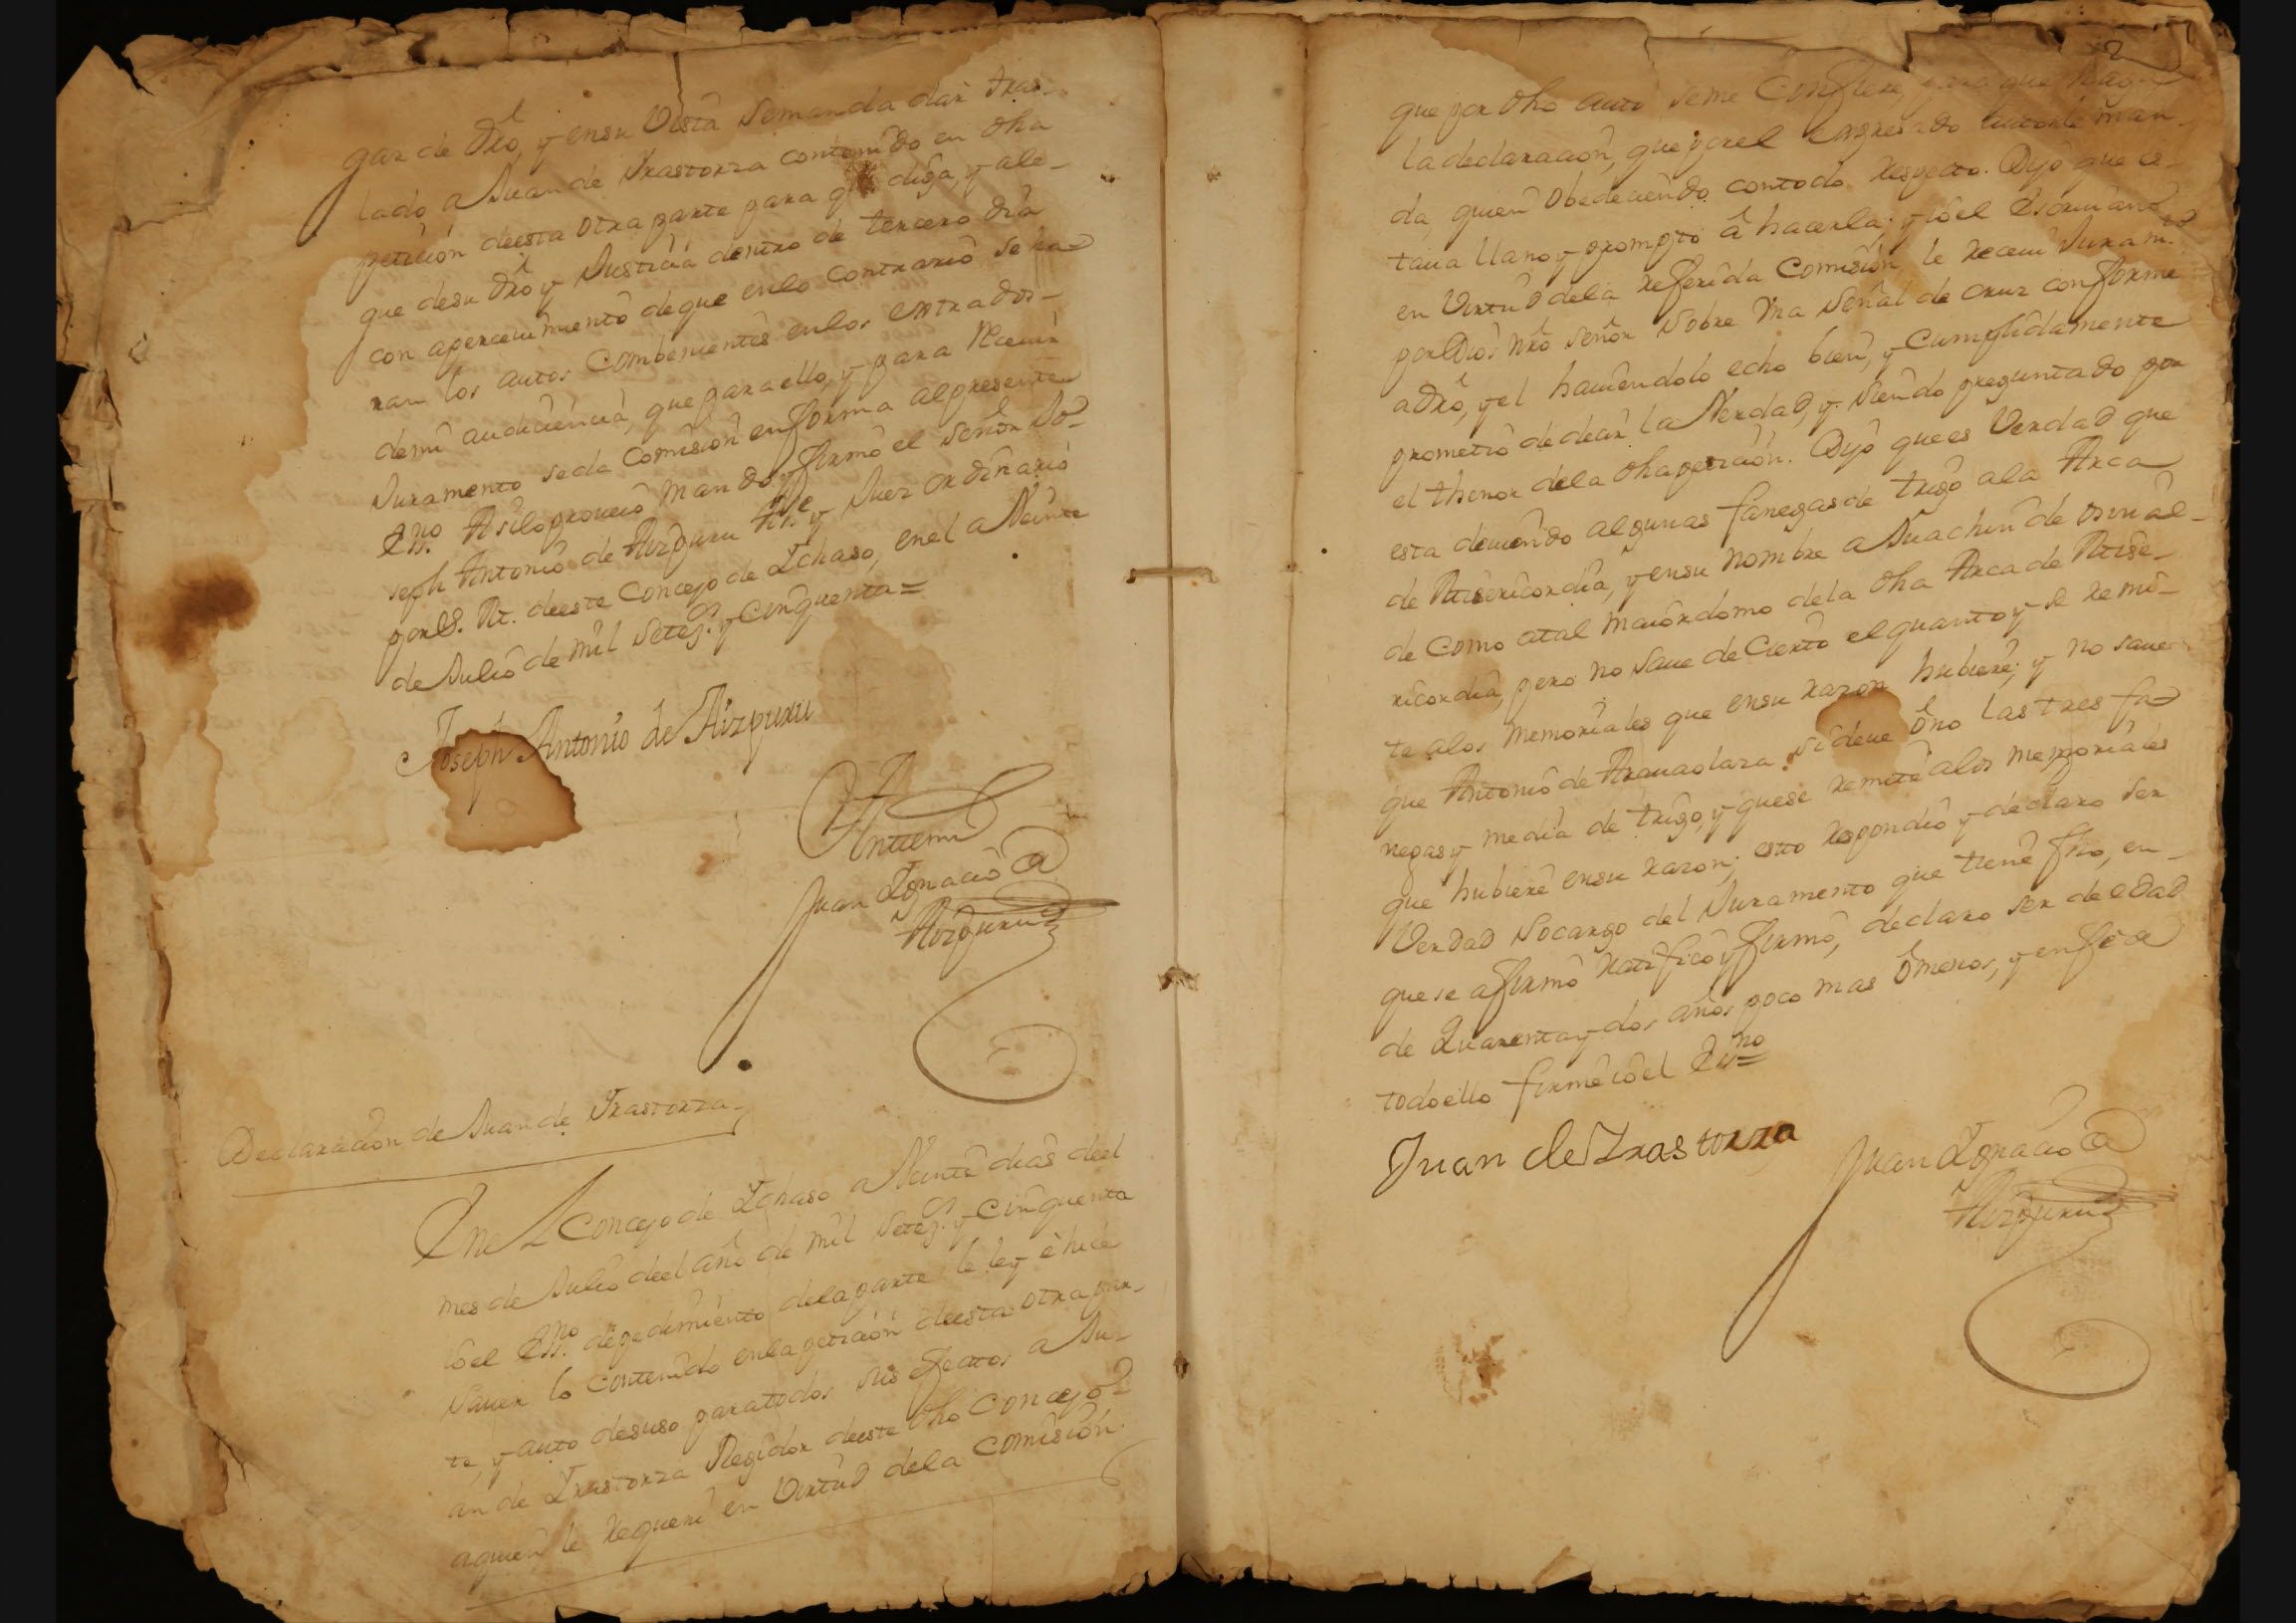 gar de dro, y ensu Vista Semanda dar tras-
lado a Juan de Yrastorza contenido en dha
petición deesta otra parte para q̃ diga, y ale-
gue desu dro y Justicia dentro de tercero dia
con apercevimiento deque enlo contrario se ha-
ran los autos Combenientes enlos estrados-
demi audiencia, que para ello, y para Recevir
Juramento se da Comisión en forma al presente
Essno. Asilo proveió mando y firmó el Señor Jo-
seph Antonio de Aizpuru Alle. y Juez ordinario
por S. M. deeste Concejo de Ychaso, en el a Veinte
de Julio de mil Setezs. y Cinquenta=
Joseph Antonio de Aizpuru
Antemi
Juan Ygnacio de
Aizpuru
Declaración de Juan de Yrastorza-
En el Concejo de Ychaso a Veinte dias deel
mes de Julio deel año de mil Setezs. y Cinquenta
ió el Essno. de pedimiento dela parte le ley è hice
Saver lo contenido enla petición deesta otra par-
te, y auto desuso para todos sus efectos a Ju-
an de Yrastorza Regidor deeste dho Concejo
aquien le requerí en Virtud dela Comisión.
2
que por dho auto seme Confiere, para que haga
la declaración, que por el expresado auto se man-
da, quien obedeciendo con todo respecto. Dijo que es-
tava llano y prompto â hacerla; y ió el Escrivano
en Virtud dela referida Comisión, le receví Juramto.
por Dios nro Señor Sobre Vna Señal de cruz conforme
a dro, y el haviendolo echo bien, y Cumplidamente
prometió de decir la Verdad, y Siendo preguntado por
el thenor dela dha petición. Dijo que es Verdad que
esta deviendo algunas fanegas de trigo ala Arca
de Misericordia, y ensu nombre a Juachin de osinal-
de Como atal maiordomo dela dha Arca de Mise-
ricordia, pero no Save de Cierto el quanto y se remi-
te alos memoriales que ensu razon hubiere; y no save
que Antonio de Aranaolaza si deve ô no las tres fa-
negas y media de trigo, y que se remite alos memoriales
que hubiere ensu razon; esto respondió y declaro ser
Verdad Socargo del Juramento que tiene fho, en-
que se afirmó ratificó y firmó, declaro ser de edad
de Quarenta y dos años poco mas ô menos, y en fee de
todo ello firmé ió el Essno=
Juan de Yrastorza
Juan Ygnacio de
Aizpuru